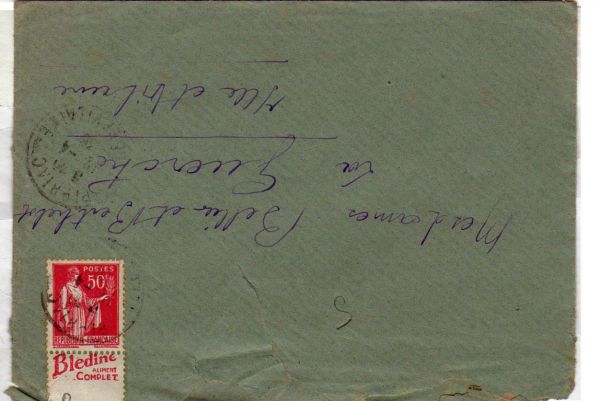 Mesdames Bellier et Berthelot
La Guerche
Ille et Vilaine
POSTES
50c
REPUBLIQUE FRANÇAISE
Blédine
ALIMENT
COMPLET